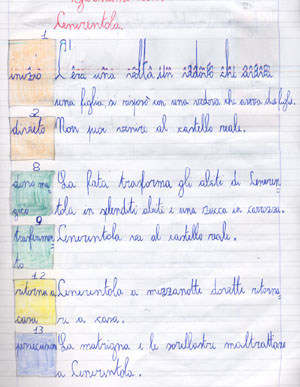 Cenerentola
1
Al
inizio C'era una volta un vedovo che aveva
una figlia, si risposò con una vedova che aveva due figlie.
2
divieto Non puoi venire al castello reale.
8
dono ma La fata trasforma gli abiti di Ceneren
gico tola in splenditi abiti e una zucca in carrozza.
9
trasferimen Cenerentola va al castello reale.
to
12
ritorno a Cenerentola a mezzanotte dovette ritorna
casa re a casa.
13
persecuzione La matrigna e le sorellastre maltrattano
a Cenerentola.